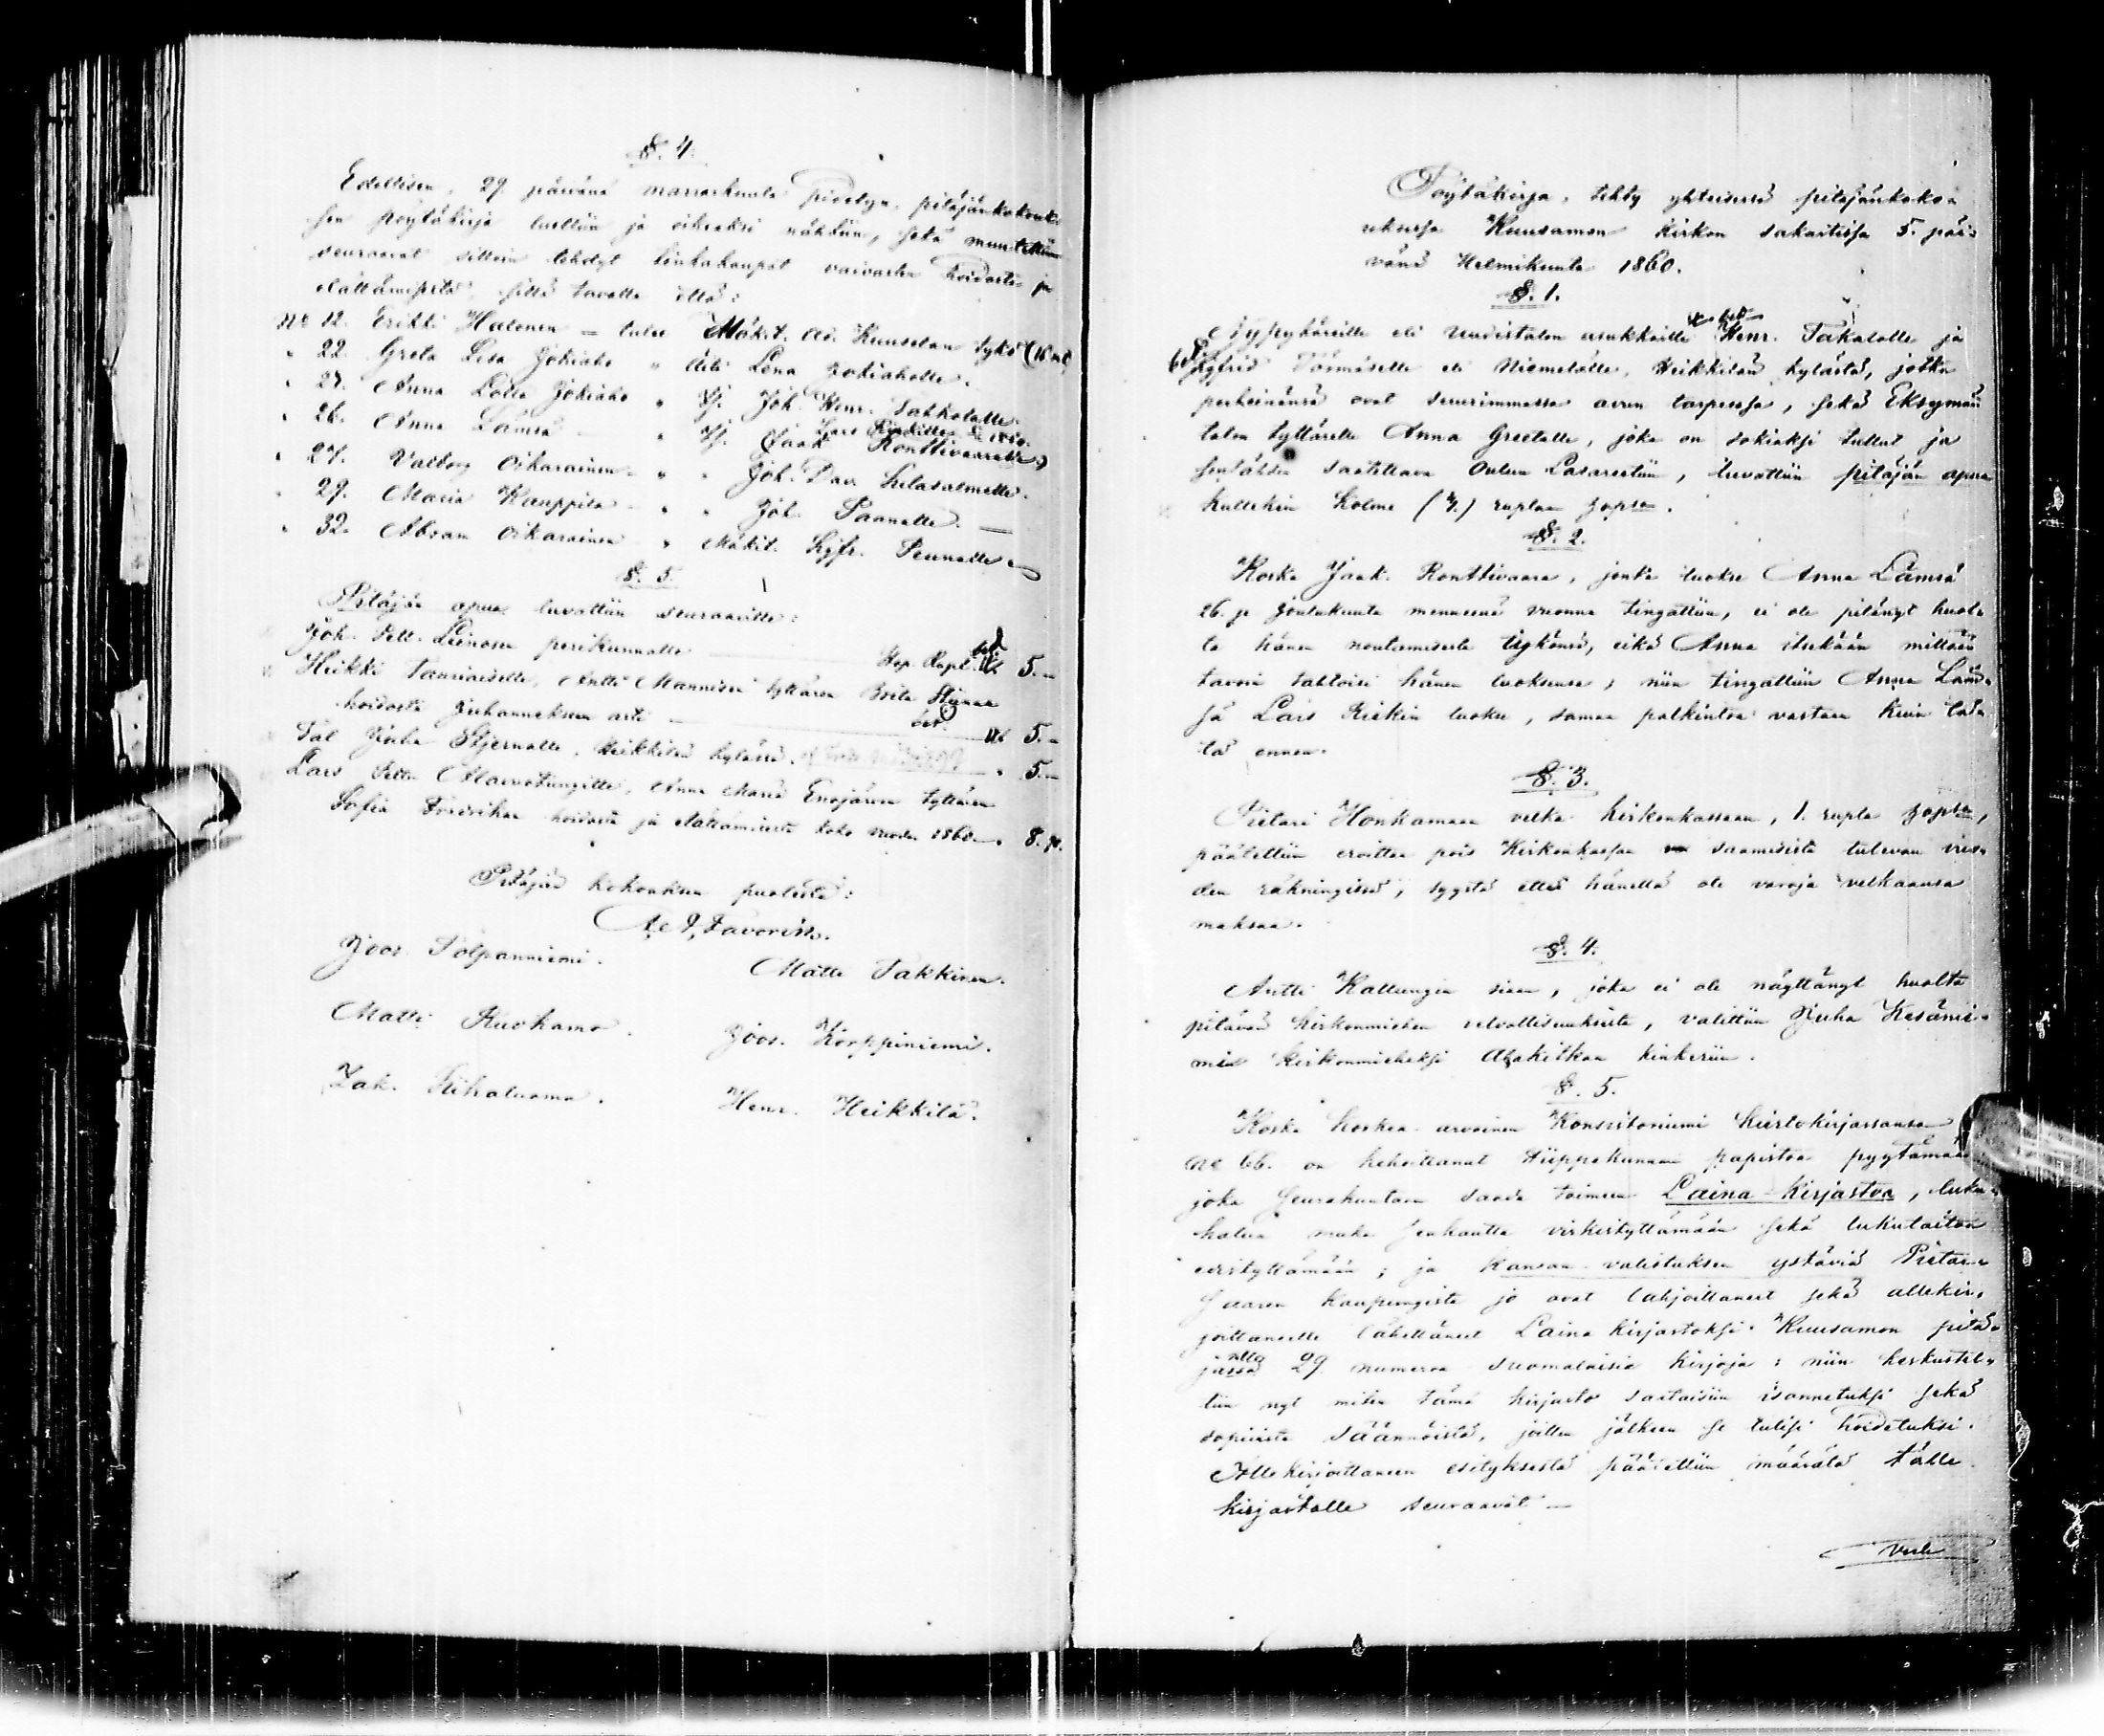 §. 4.
Edellisen, 29. päivänä marraskuuta pidetyn, pitäjänkokouk-
sen pöytäkirja luettiin ja oikeaksi nähtiin, sekä muutettiin
seuraavat silloin tehdyt liukakaupat vaivasten hoidosta ja
elättämisestä, sillä tavalla että:
No 12. Erikki Halonen — tulee Mäkit. Ad. Kuuselan tykö
" 22. Greta Lisa Jokiaho " Äiti Lena Jokiaholle.
" 24. Anna Lotta Jokiaho " Tl. Joh. Henr. Tahkolalle.
Lars Kiekille
" 26. Anna Lämsä — " Tl. Jaak Ronttivaaralle
" 27. Valborg Oikarainen " " Joh. Dav. Lulasalmelle.
" 29. Maria Kauppila " " Joh. Paanalle. —
" 32. Abram Oikarainen " Mäkit. Sigfr. Peunalle
§. 5.
Pitäjän apua luvattiin seuraaville:
Joh. Pett. Leinosen perikunnalle — Hop. Rupl. 5.-
Heikki Tauriaiselle, Antti Mannisen tyttären Brita Stiinan
hoidosta Juhannuksen asti — 5.-
Tal Juha Stjernalle, Heikkilän kylässä, — " 5.-
Lars Petter Maevatungille, Anna Maria Enojärven tyttären
Sofia Fredrikan hoidosta ja elättämisestä koko vuoden 1860 — " 8.
Pitäjän kokouksen puolesta:
A. J. Favorin.
Joos. Tolpanniemi.
Matti Takkinen.
Matti Kuohamo.
Joos. Korppiniemi.
Zak. Riihaluoma.
Henr. Heikkilä.
Pöytäkirja, tehty yhteisessä pitäjänkoko-
uksessa Kuusamon kirkon sakastissa 5. päi-
vänä Helmikuuta 1860.
§. 1.
Nypykäisille eli uudistalon asukkaille Henr. Takalalle ja
Sigfrid Törmäselle eli Niemelälle, Heikkilän kylästä, jotka
perheinänsä ovat suurimmassa avun tarpeessa, sekä Eksymän
talon tyttärelle Anna Greetalle, joka on sokiaksi tullut ja
sentähden saatettava Oulun Lasarettiin, luvattiin pitäjän apua
kullekin kolme (3.) ruplaa hopea.
§. 2.
Koska Jaak. Ronttivaara, jonka luokse Anna Lämsä
26. p. Joulukuuta menneenä vuonna tingattiin, ei ole pitänyt huol-
ta hänen noutamisesta tykönsä, eikä Anna itsekään millään
tavoin tahtoisi hänen luoksensa; niin tingattiin Anna Läm-
sä Lars Kiekin luokse, samaa palkintoa vastaan kuin tätä
tä ennen.
§. 3.
Pietari Honkamaan velka kirkonkassaan, 1. rupla hopea,
päätettiin eroittaa pois Kirkonkassan saamisista tulevan vuo-
den räkningissä, syystä ettei hänellä ole varoja velkaansa
maksaa.
§. 4.
Antti Kallungin siaan, joka ei ole näyttänyt huolta
pitävän kirkonmiehen velvollisuuksista, valittiin Juha Kesänie-
mi kirkonmieheksi Alakitkan kinkeriin.
§. 5.
Koska korkea-arvoinen Konsistoriumi kiertokirjassansa
No 66. on kehoittanut Hiippakunnan papistoa pyytämään
joka seurakuntaan saada toimeen Laina-kirjastoa, luku-
halua muka senkautta virkistyttämään sekä lukutaitoa
edistyttämään; ja kansan-valistuksen ystäviä Pietarin
Saaren kaupungista jo ovat lahjoittaneet sekä allekir-
joittaneelle lähettäneet Laina-kirjastoksi Kuusamon pitä-
jässä 29 numeroa suomalaisia kirjoja; niin keskustel-
tiin nyt miten tämä kirjasto saataisiin isännetuksi sekä
sopivista säännöistä, joitten jälkeen se tulisi hoidetuksi.
Allekirjoittaneen esityksestä päätettiin määrätä tälle
kirjastolle seuraavat —